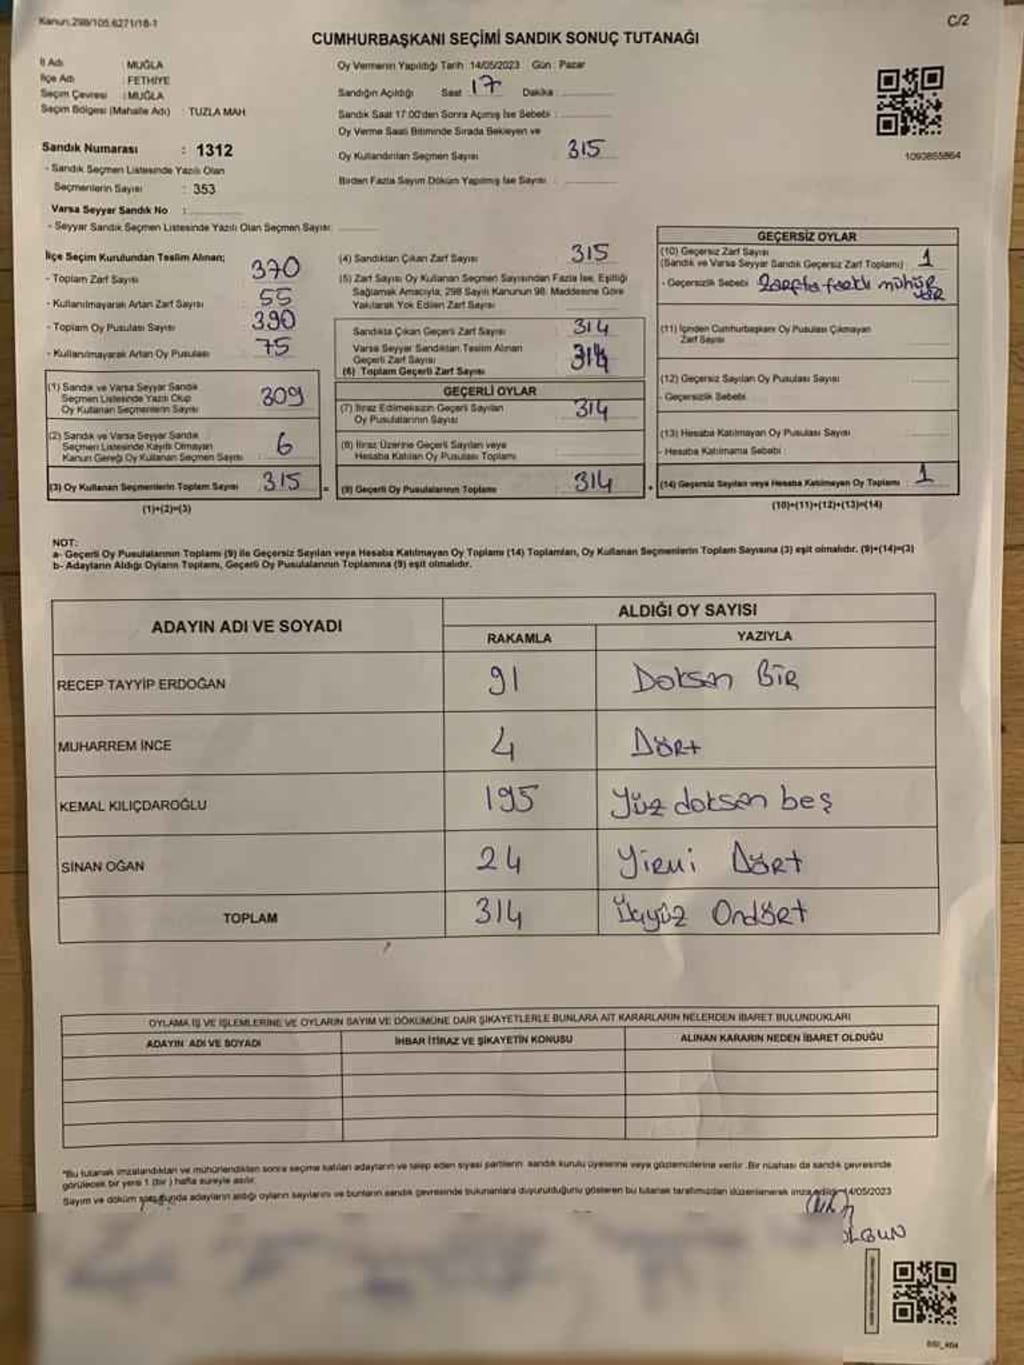 Kanun:298/105.6271/18-1
C/2
CUMHURBAŞKANI SEÇİMİ SANDIK SONUÇ TUTANAĞI
İl Adı : MUĞLA
İlçe Adı : FETHİYE
Seçim Çevresi : MUĞLA
Seçim Bölgesi (Mahalle Adı) : TUZLA MAH
Sandık Numarası : 1312
- Sandık Seçmen Listesinde Yazılı Olan
Seçmenlerin Sayısı : 353
Varsa Seyyar Sandık No :
- Seyyar Sandık Seçmen Listesinde Yazılı Olan Seçmen Sayısı:
Oy Vermenin Yapıldığı Tarih :14/05/2023 Gün : Pazar
Sandığın Açıldığı Saat 17 Dakika :
Sandık Saat 17.00'den Sonra Açımış İse Sebebi :
Oy Verme Saati Bitiminde Sırada Bekleyen ve
Oy Kullandırılan Seçmen Sayısı 315
Birden Fazla Sayım Döküm Yapılmış İse Sayısı :
1093855864
İlçe Seçim Kurulundan Teslim Alınan;
- Toplam Zarf Sayısı 370
- Kullanılmayarak Artan Zarf Sayısı 55
- Toplam Oy Pusulası Sayısı 390
- Kullanılmayarak Artan Oy Pusulası 75
(1) Sandık ve Varsa Seyyar Sandık
Seçmen Listesinde Yazılı Olup
Oy Kullanan Seçmenlerin Sayısı 309
(2) Sandık ve Varsa Seyyar Sandık
Seçmen Listesinde Kayıtlı Olmayan
Kanun Gereği Oy Kullanan Seçmen Sayısı 6
(3) Oy Kullanan Seçmenlerin Toplam Sayısı 315
(1)+(2)=(3)
(4) Sandıktan Çıkan Zarf Sayısı 315
(5) Zarf Sayısı Oy Kullanan Seçmen Sayısından Fazla İse, Eşitliği
Sağlamak Amacıyla, 298 Sayılı Kanunun 98. Maddesine Göre
Yakılarak Yok Edilen Zarf Sayısı
Sandıkta Çıkan Geçerli Zarf Sayısı 314
Varsa Seyyar Sandıktan Teslim Alınan
Geçerli Zarf Sayısı
(6) Toplam Geçerli Zarf Sayısı 314
GEÇERLİ OYLAR
(7) İtiraz Edilmeksizin Geçerli Sayılan
Oy Pusulalarının Sayısı 314
(8) İtiraz Üzerine Geçerli Sayılan veya
Hesaba Katılan Oy Pusulası Toplamı
(9) Geçerli Oy Pusulalarının Toplamı 314
GEÇERSİZ OYLAR
(10) Geçersiz Zarf Sayısı
(Sandık ve Varsa Seyyar Sandık Geçersiz Zarf Toplamı) 1
- Geçersizlik Sebebi Zarfta farklı mühür
(11) İçinden Cumhurbaşkanı Oy Pusulası Çıkmayan
Zarf Sayısı
(12) Geçersiz Sayılan Oy Pusulası Sayısı
- Geçersizlik Sebebi
(13) Hesaba Katılmayan Oy Pusulası Sayısı
- Hesaba Katılmama Sebebi :
(14) Geçersiz Sayılan veya Hesaba Katılmayan Oy Toplamı 1
(10)+(11)+(12)+(13)=(14)
NOT:
a- Geçerli Oy Pusulalarının Toplamı (9) ile Geçersiz Sayılan veya Hesaba Katılmayan Oy Toplamı (14) Toplamları, Oy Kullanan Seçmenlerin Toplam Sayısına (3) eşit olmalıdır. (9)+(14)=(3)
b- Adayların Aldığı Oyların Toplamı, Geçerli Oy Pusulalarının Toplamına (9) eşit olmalıdır.
ADAYIN ADI VE SOYADI
ALDIĞI OY SAYISI
RAKAMLA YAZIYLA
RECEP TAYYİP ERDOĞAN 91 Doksan Bir
MUHARREM İNCE 4 Dört
KEMAL KILIÇDAROĞLU 195 Yüz doksan beş
SİNAN OĞAN 24 Yirmi Dört
TOPLAM 314 Üçyüz Ondört
OYLAMA İŞ VE İŞLEMLERİNE VE OYLARIN SAYIM VE DÖKÜMÜNE DAİR ŞİKAYETLERLE BUNLARA AİT KARARLARIN NELERDEN İBARET BULUNDUKLARI
ADAYIN ADI VE SOYADI İHBAR İTİRAZ VE ŞİKAYETİN KONUSU ALINAN KARARIN NEDEN İBARET OLDUĞU
*Bu tutanak imzalandıktan ve mühürlendikten sonra seçime katılan adayların ve talep eden siyasi partilerin sandık kurulu üyelerine veya gözlemcilerine verilir. Bir nüshası da sandık çevresinde
görülecek bir yere 1 (bir) hafta süreyle asılır.
Sayım ve döküm sonucunda adayların aldığı oyların sayılarını ve bunların sandık çevresinde bulunanlara duyurulduğunu gösteren bu tutanak tarafımızdan düzenlenerek imza edildi. 14/05/2023
OLGUN